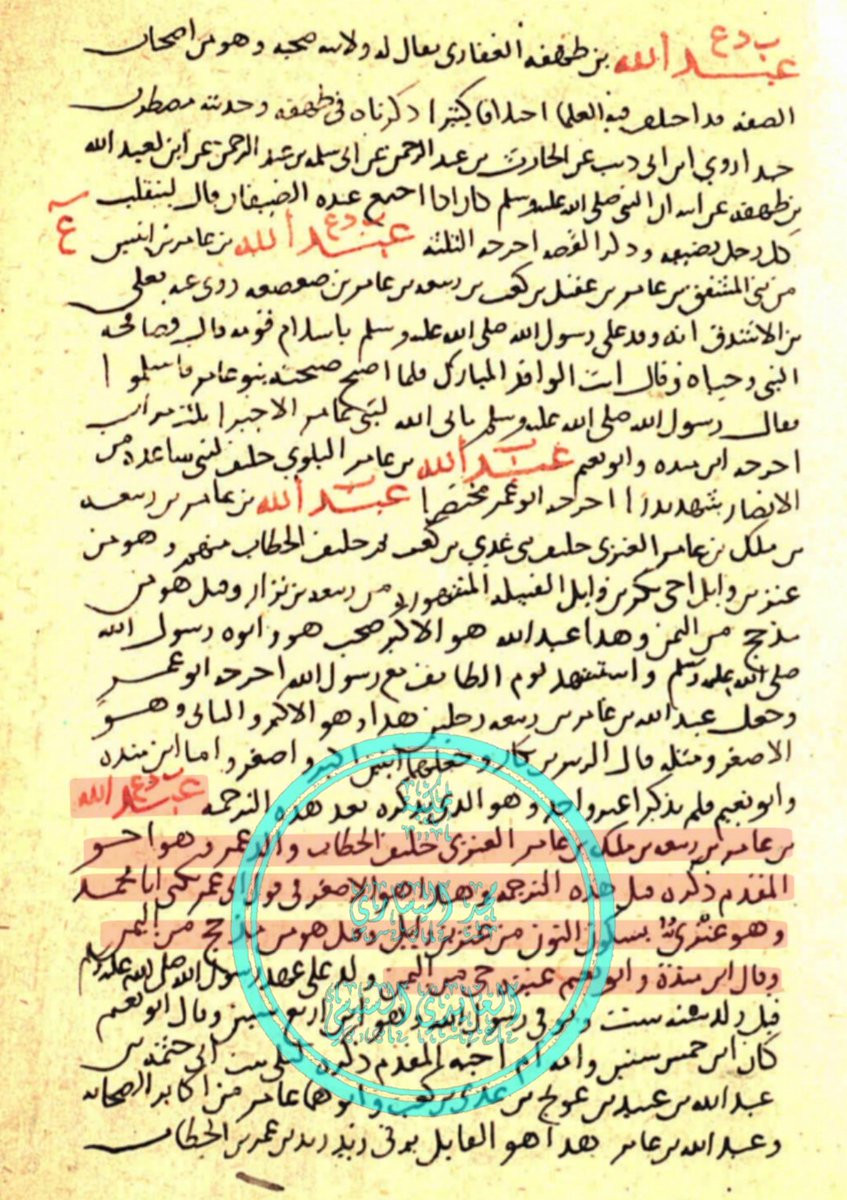 ب د ع
عبد الله بن طهفه الغفاري يقال له ولابيه صحبه وهو من اصحاب
الصفه قد اختلف فيه العلما اختلافا كثيرا ذكرناه في طهفه وحديثه مضطرب
جدا روي ابن ابي ذيب عن الحارث بن عبد الرحمن عن ابي سلمه بن عبد الرحمن عن ابن لعبد الله
بن طهفه عن ابيه ان النبي صلى الله عليه وسلم كان اذا اجتمع عنده الضيفان قال لينقلب
كل رجل بضيفه وذكر القصه اخرجه الثلثه ب د ع عبد الله بن عامر بن انيس
من بني المنتفق بن عامر بن عقيل بن كعب بن ربيعه بن عامر بن صعصعه روى عنه يعلى
بن الاشدق انه وفد على رسول الله صلى الله عليه وسلم باسلام قومه قال فصافحه
النبي وحياه وقال انت الوافد المبارك فلما اصبح صبحته بنو عامر فاسلموا
فقال رسول الله صلى الله عليه وسلم يابى الله لبني عامر الا خيرا ثلث مرات
اخرجه ابن منده وابو نعيم ب عبد الله بن عامر البلوي حليف لبني ساعده من
الانصار شهد بدرا اخرجه ابو عمر مختصرا ب عبد الله بن عامر بن ربيعه
بن ملك بن عامر العنزي حليف بني عدي بن كعب ثم حليف الخطاب منهم وهو من
عنز بن وايل اخي بكر بن وايل القبيله المشهوره من ربيعه بن نزار وقيل هو من
مذحج من اليمن وهذا عبد الله هو الاكبر صحب هو وابوه رسول الله
صلى الله عليه وسلم واستشهد يوم الطايف مع رسول الله اخرجه ابو عمر
وجعل عبد الله بن عامر بن ربيعه رجلين هذا وهو الاكبر والثاني وهو
الاصغر ومثله قال الزبير بن بكار وجعلهما اثنين اكبر واصغر واما ابن منده
وابو نعيم فلم يذكرا غير واحد وهو الذي نذكره بعد هذه الترجمه ب د ع عبد الله
بن عامر بن ربيعه بن ملك بن عامر العنزي حليف الخطاب والد عمر وهو اخو
المقدم ذكره قبل هذه الترجمه وهذا هو الاصغر في قول ابي عمر يكنى ابا محمد
وهو عنزي بسكون النون من عنز بن وايل وقيل هو من مذحج من اليمن
وقال ابن منده وابو نعيم عنز حي من اليمن ولد على عهد رسول الله صلى الله عليه وسلم
قيل ولد سنه ست وتوفي رسول الله وهو ابن اربع سنين وقال ابو نعيم
كان ابن خمس سنين وامه ام اخيه المقدم ذكره ليلى بنت ابي حثمه بن
عبد الله بن عبيد بن عويج بن عدي بن كعب وابوهما عامر من اكابر الصحابه
وعبد الله بن عامر هذا هو القايل يرثي زيد بن عمر بن الخطاب